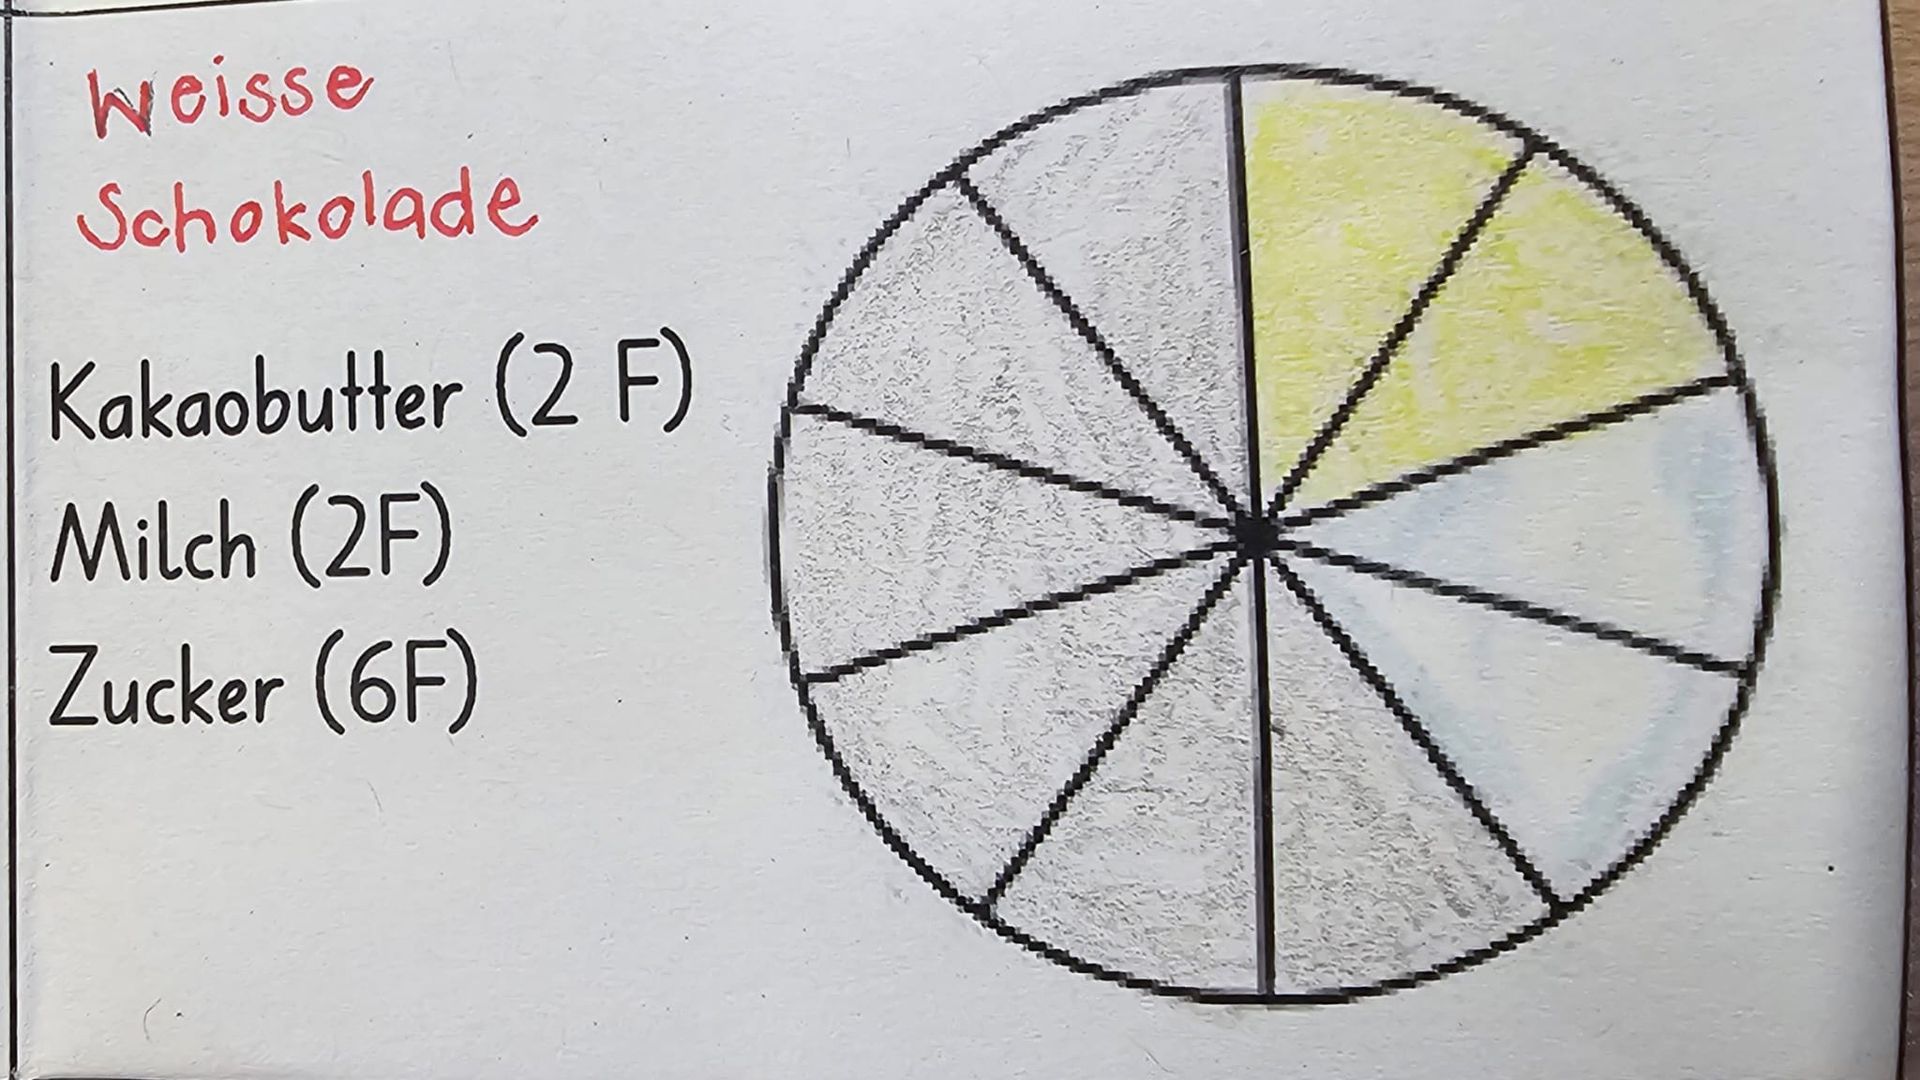 Weisse
Schokolade
Kakaobutter (2 F)
Milch (2F)
Zucker (6F)